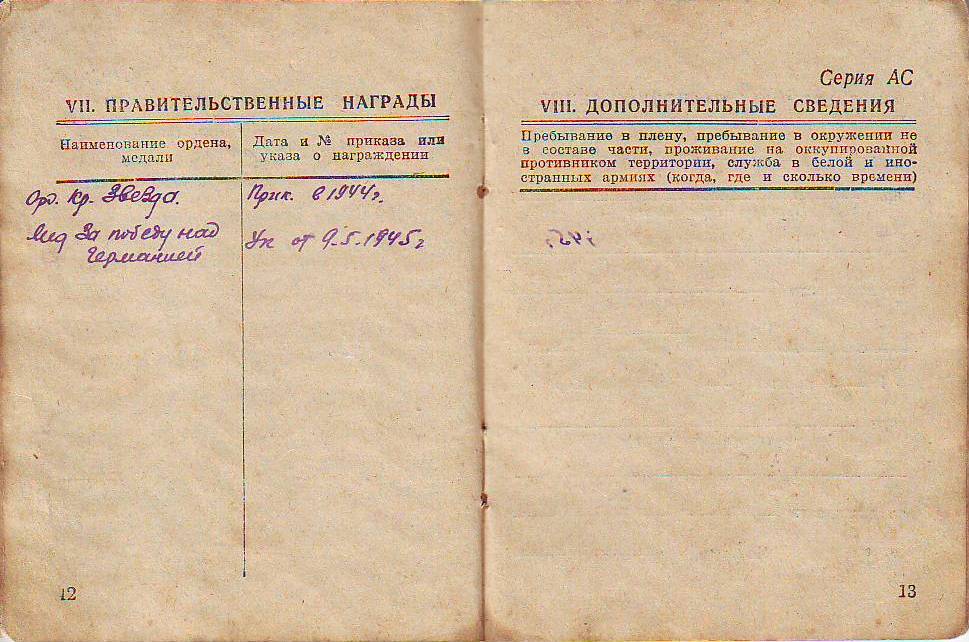 VII. ПРАВИТЕЛЬСТВЕННЫЕ НАГРАДЫ
Наименование ордена,
медали
Дата и № приказа или
указа о награждении
Орд. Кр. Звезда.
Прик. в 1944г.
Мед За победу над
Германией
Ук от 9.5.1945г
12
Серия АС
VIII. ДОПОЛНИТЕЛЬНЫЕ СВЕДЕНИЯ
Пребывание в плену, пребывание в окружении не
в составе части, проживание на оккупированной
противником территории, служба в белой и ино-
странных армиях (когда, где и сколько времени)
13